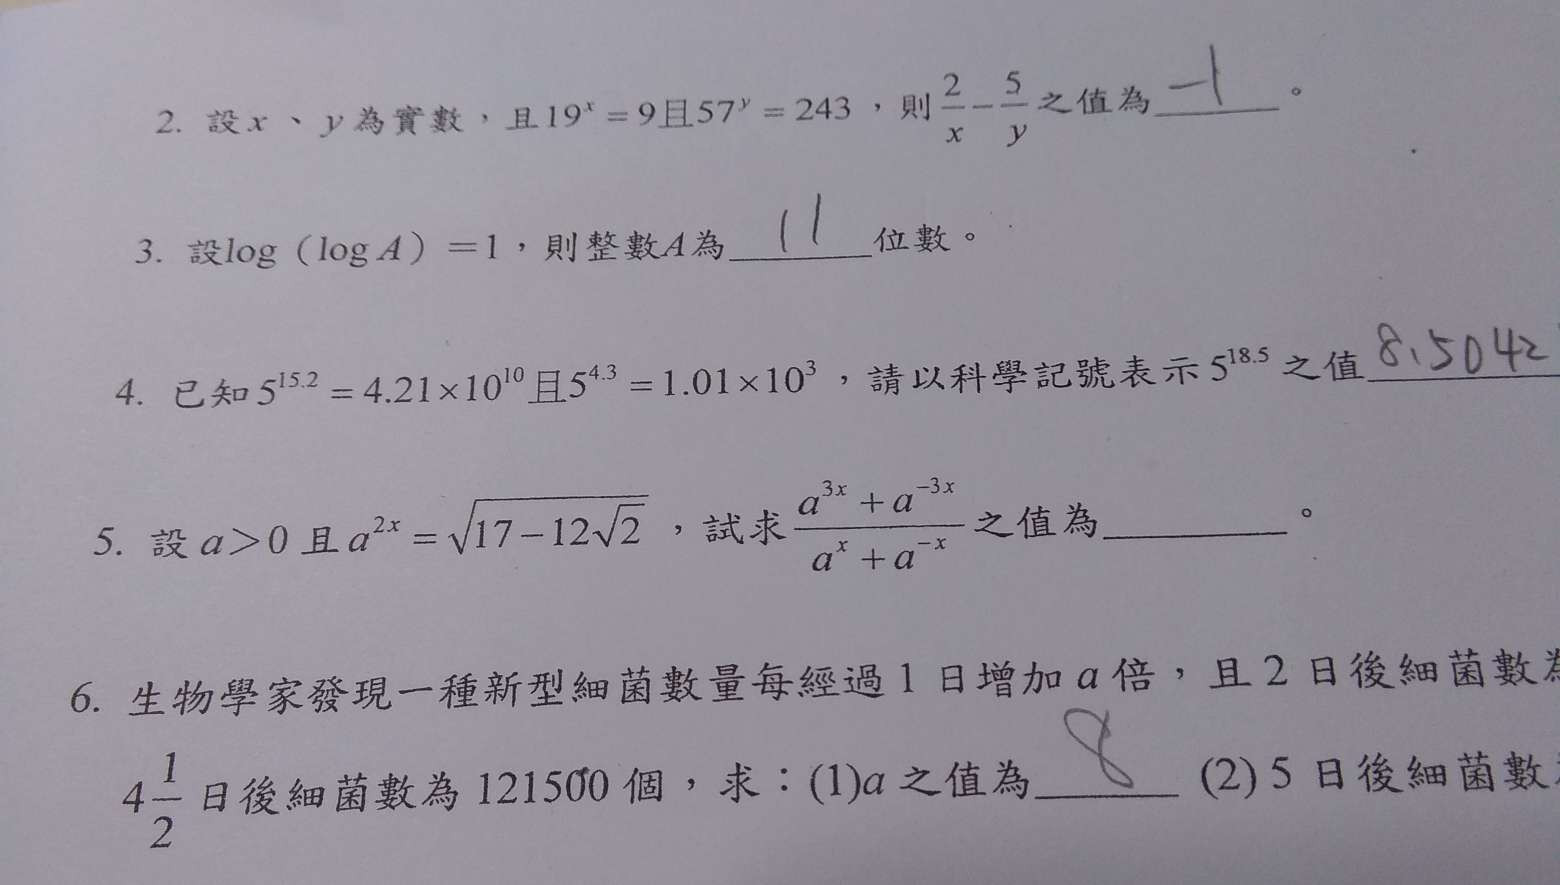 2. 設 x、y 為實數，且 19^x = 9 且 57^y = 243，則 2/x − 5/y 之值為 −1 。
3. 設 log（log A）＝1，則整數 A 為 11 位數。
4. 已知 5^15.2 = 4.21×10^10 且 5^4.3 = 1.01×10^3，請以科學記號表示 5^18.5 之值 8.5042
5. 設 a＞0 且 a^2x = √(17−12√2)，試求 (a^3x + a^−3x)/(a^x + a^−x) 之值為______。
6. 生物學家發現一種新型細菌數量每經過 1 日增加 a 倍，且 2 日後細菌數為
4 1/2 日後細菌數為 121500 個，求：(1)a 之值為 8 (2) 5 日後細菌數